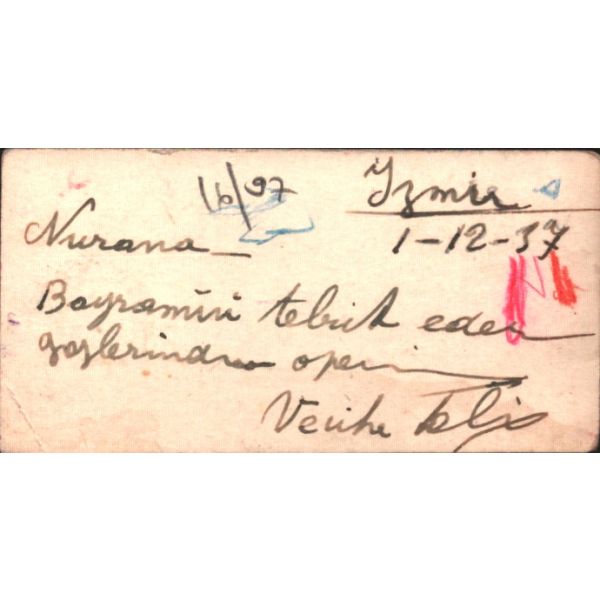 16/97
İzmir
1-12-37
Nurana
Bayramini tebrik eder
gozlerinden operim
Vecihe